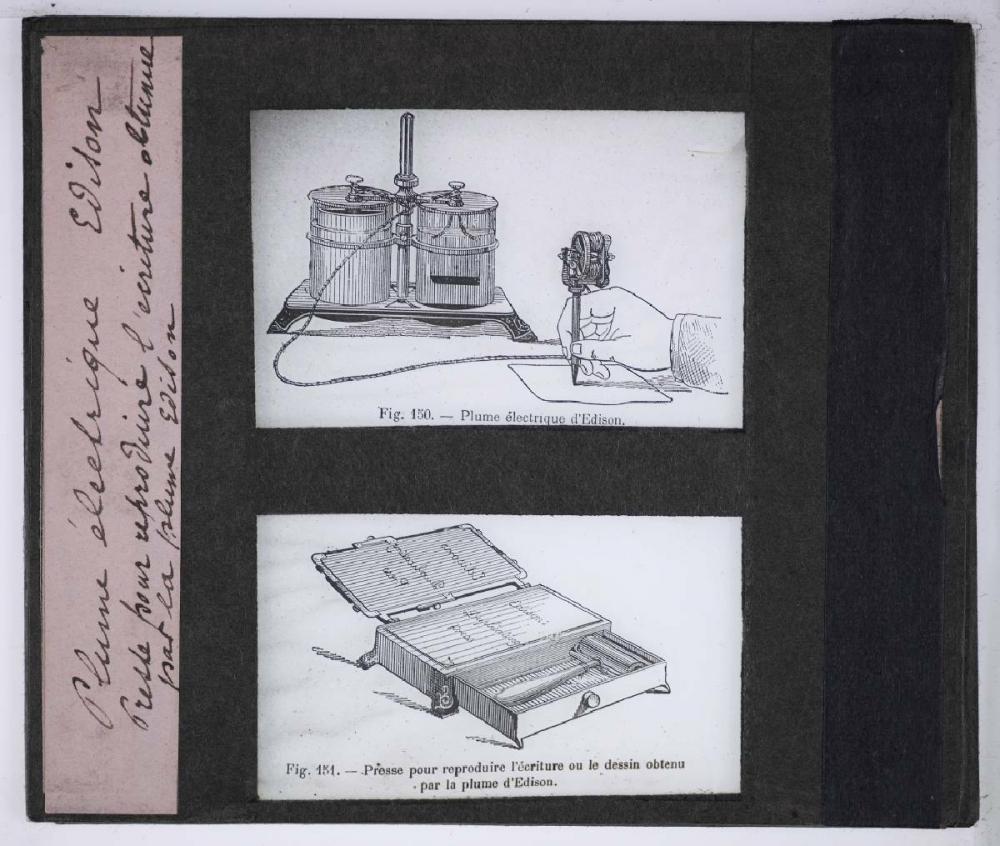 Plume électrique Edison
Presse pour reproduire l'écriture obtenue
par la plume Edison
Fig. 150. — Plume électrique d'Edison.
Fig. 151. — Presse pour reproduire l'écriture ou le dessin obtenu
par la plume d'Edison.